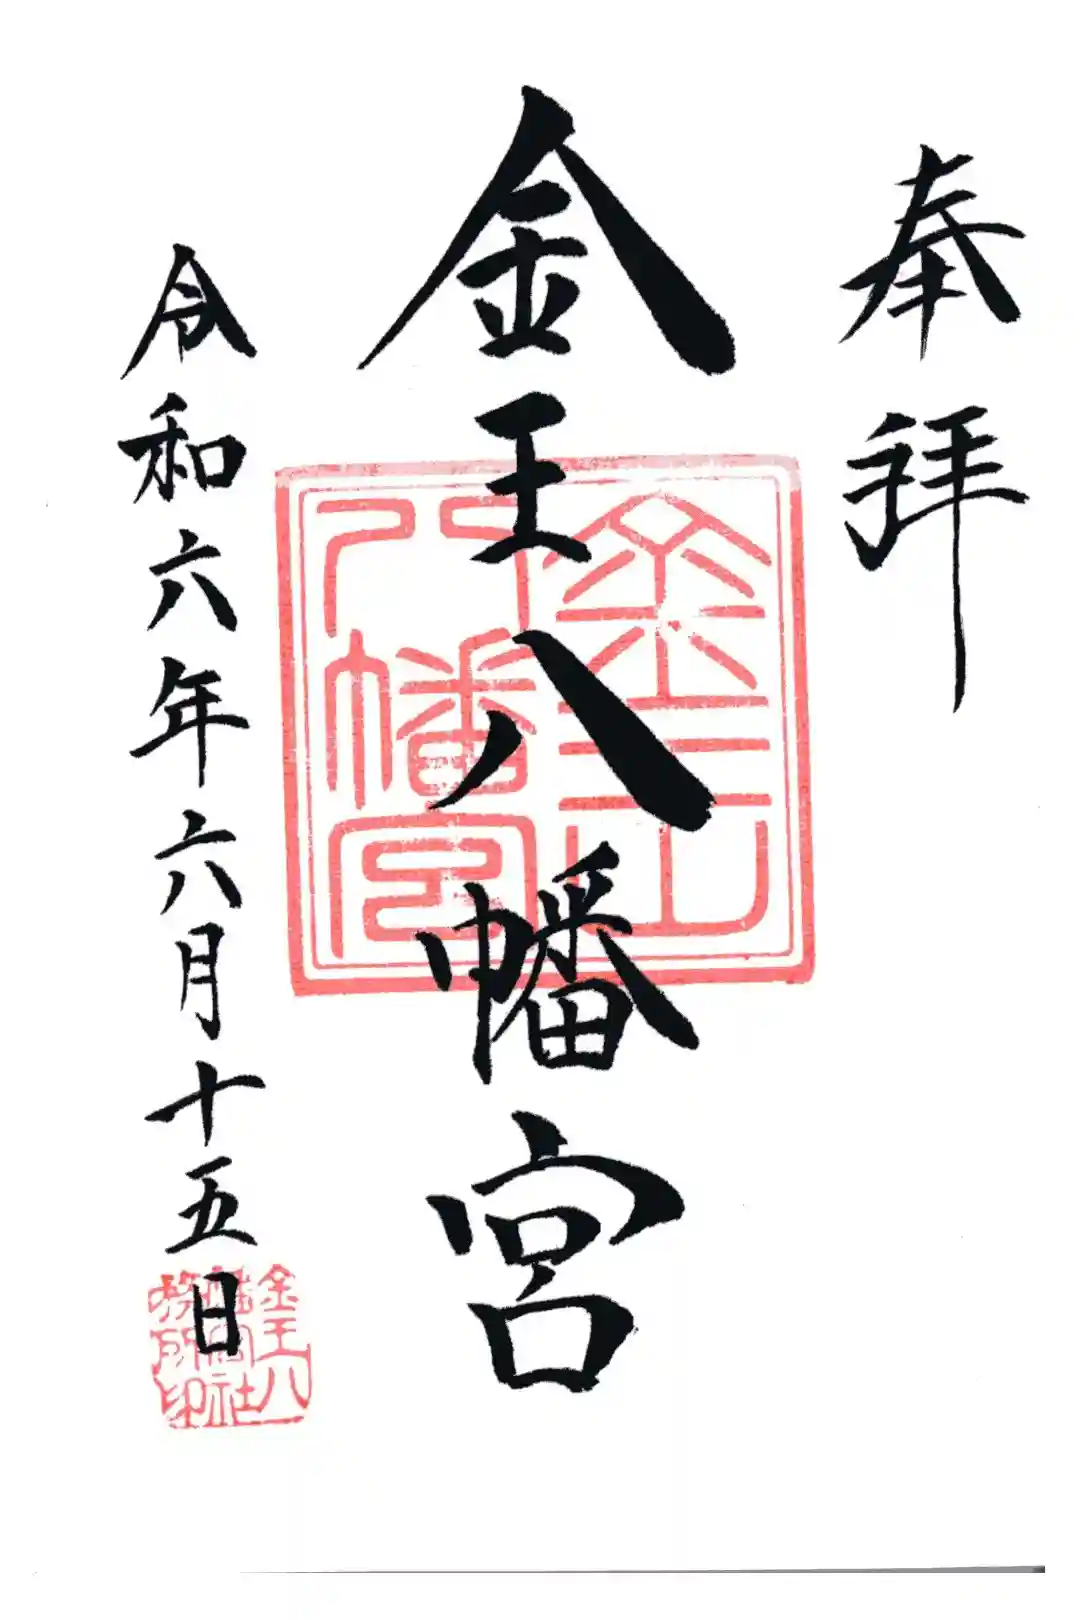 奉拝
金王八幡宮
金王
八幡宮
令和六年六月十五日
金王八
幡宮社
務所印